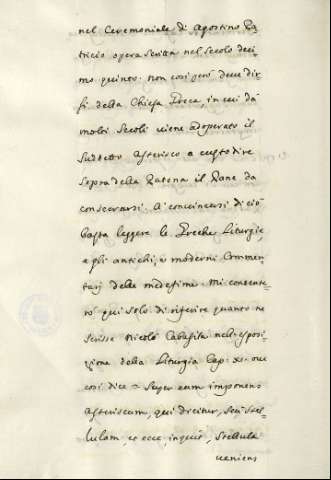 nel Ceremoniale di Agostino Pa-
tricio opera scritta nel secolo deci
mo quinto. non così però deve dir
si della Chiesa Greca, in cui da
molti Secoli viene adoperato il
suddetto Asterisco a custodire
sopra della Patena il Pane da
consecrarsi. A convincersi di ciò
basta leggere le Greche Liturgie,
e gli antichi, e moderni Commen
tarj delle medesime. Mi contente-
rò qui solo di riferire quanto ne
scrisse Nicolò Cabasila nell'esposi-
zione della Liturgia Cap. XI. ove
così dice = Super eum imponens
Asteriscum, qui dicitur, seu Stel-
lulam, et ecce, inquit, Stellula
veniens